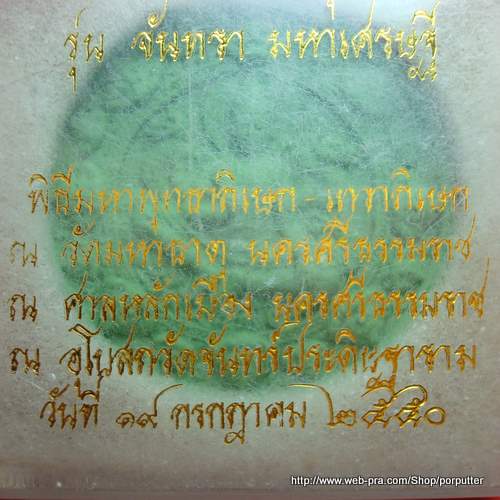 รุ่น จันทรา มหาเศรษฐี
พิธีมหาพุทธาภิเษก - เทวาภิเษก
ณ วัดมหาธาตุ นครศรีธรรมราช
ณ ศาลหลักเมือง นครศรีธรรมราช
ณ อุโบสถวัดจันทร์ประดิษฐาราม
วันที่ ๑๙ กรกฎาคม ๒๕๕๐
http://www.web-pra.com/Shop/porputter